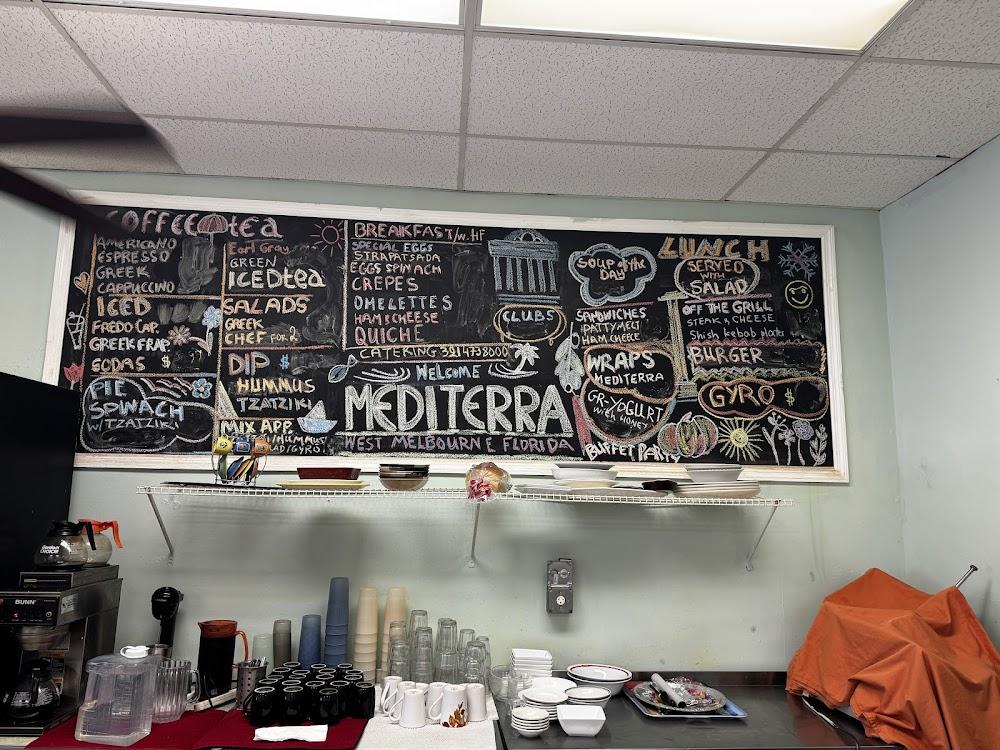 COFFEE tea
AMERICANO
ESPRESSO
GREEK
CAPPUCCINO
ICED
FREDO CAP.
GREEK FRAP.
SODAS $
PIE
SPINACH
W/TZATZIKI
Earl Gray
GREEN
ICEDtea
SALADS
GREEK
CHEF FOR 2
DIP $
HUMMUS
TZATZIKI
MIX APP.
/HUMMUS
AD/GYRO
BREAKFAST/W. HF
SPECIAL EGGS
STRAPATSADA
EGGS SPINACH
CREPES
OMELETTES
HAM & CHEESE
QUICHE
CLUBS
CATERING 3214738000
WELCOME
MEDITERRA
WEST MELBOURNE FLORIDA
SOUP of the
DAY
SANDWICHES
PATTY MELT
HAM CHEECE
WRAPS
MEDITERRA
GR-YOGURT
WITH HONEY
BUFFET PARTY
LUNCH
SERVED
WITH
SALAD
OFF THE GRILL
STEAK & CHEESE
Shish kebob
BURGER
GYRO $
BUNN